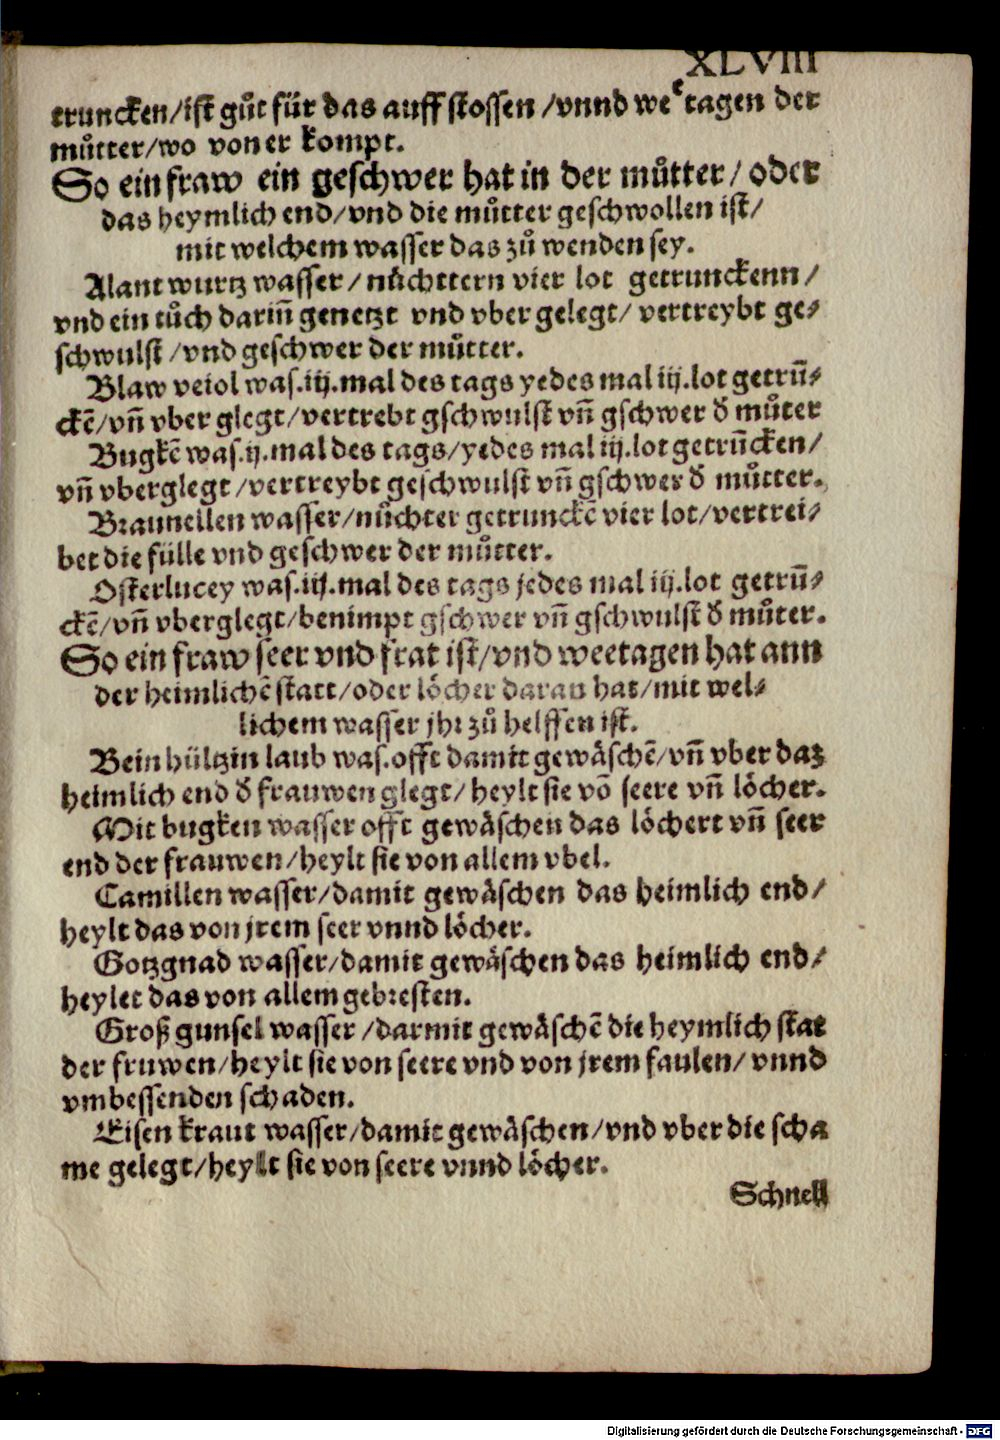 XLVIII
truncken/ist gůt für das auff stossen/vnnd weetagen der
můtter/wo von er kompt.
So ein fraw ein geschwer hat in der můtter/ oder
das heymlich end/vnd die můtter geschwollen ist/
mit welchem wasser das zů wenden sey.
Alant wurtz wasser/ nůchttern vier lot getrunckenn/
vnd ein tůch dariñ genetzt vnd vber gelegt/ vertreybt ge⸗
schwulst/vnd geschwer der můtter.
Blaw veiol was.iij.mal des tags yedes mal iij.lot getrũ⸗
ckẽ/vñ vber glegt/vertrebt gschwulst vñ gschwer d̕ můter
Bugkẽ was.ij.mal des tags/yedes mal iij.lot getrũcken/
vñ vberglegt/vertreybt geschwulst vñ gschwer d̕ můtter.
Braunellen wasser/nůchter getrunckẽ vier lot/vertrei⸗
bet die fülle vnd geschwer der můtter.
Osterlucey was.iij.mal des tags jedes mal iij.lot getrũ⸗
ckẽ/vñ vberglegt/benimpt gschwer vñ gschwulst d̕ můter.
So ein fraw seer vnd frat ist/vnd weetagen hat ann
der heimlichẽ statt/oder löcher daran hat/mit wel⸗
lichem wasser jhr zů helffen ist.
Bein hültzin laub was.offt damit gewäschẽ/vñ vber daz
heimlich end d̕ frauwen glegt/ heylt sie võ seere vñ löcher.
Mit bugken wasser offt gewäschen das löchert vñ seer
end der frauwen/heylt sie von allem vbel.
Camillen wasser/damit gewäschen das heimlich end/
heylt das von jrem seer vnnd löcher.
Gotzgnad wasser/damit gewäschen das heimlich end/
heylet das von allem gebresten.
Groß gunsel wasser/darmit gewäschẽ die heymlich stat
der fruwen/heylt sie von seere vnd von jrem faulen/ vnnd
vmbessenden schaden.
Eisen kraut wasser/damit gewäschen/vnd vber die scha
me gelegt/heylt sie von seere vnnd löcher.
Schnell
Digitalisierung gefördert durch die Deutsche Forschungsgemeinschaft - DFG